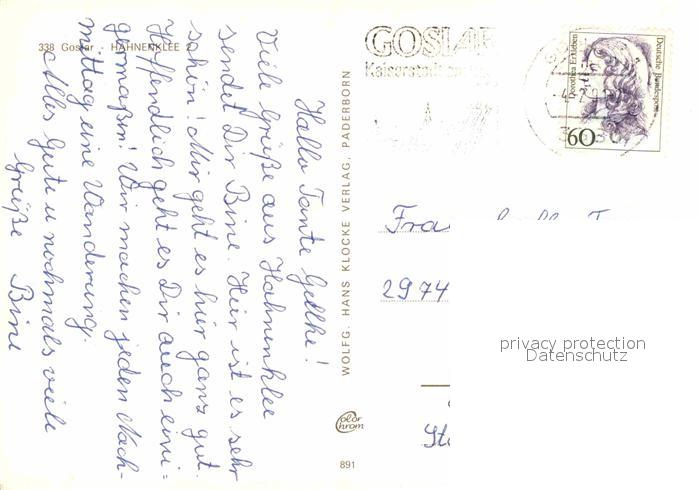 338 Goslar - HAHNENKLEE 2
Hallo Tante Gellke!
Viele Grüße aus Hahnenklee
sendet Dir Bine. Hier ist es sehr
schön! Mir geht es hier ganz gut.
Hoffendlich geht es Dir auch eini=
germaßen! Wir machen jeden Nach-
mittag eine Wanderung.
Alles Gute u nochmals viele
Grüße Bine
WOLFG. HANS KLOCKE VERLAG, PADERBORN
Color
chrom
891
GOSLAR
Kaiserstadt am
Dorothea Erxleben
Deutsche Bundespost
60
2974
privacy protection
Datenschutz